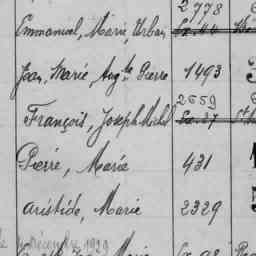 2778
Emmanuel, Marie, Urbain Ex. 44
Jean, Marie, Augte Pierre 1493
2659
François, Joseph Michel Ex. 37
Pierre, Marie 431
Aristide, Marie 2329
Décembre 1929
Marie Ex. 98